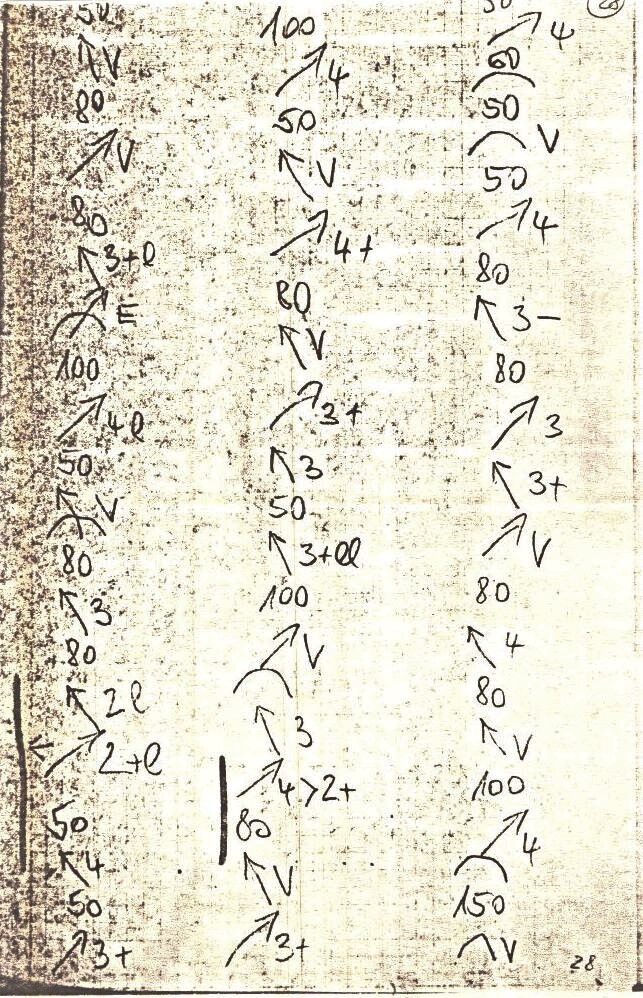 50
V
80
V
80
3+l
E
100
4l
50
V
80
3
80
2l
2+l
50
4
50
3+
100
4
50
V
4+
80
V
3+
3
50
3+ll
100
V
3
4>2+
80
V
3+
28
4
60
50
V
50
4
80
3-
80
3
3+
V
80
4
80
V
100
4
150
V
28